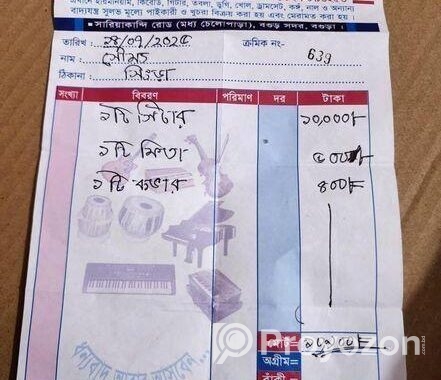 এখানে হারমোনিয়াম, কিবোর্ড, গিটার, তবলা, ডুগি, খোল, ড্রামসেট, কঙ্গ, নাল ও অন্যান্য
বাদ্যযন্ত্র সুলভ মূল্যে পাইকারী ও খুচরা বিক্রয় করা হয় এবং মেরামত করা হয়।
সারিয়াকান্দি রোড (মধ্য চেলোপাড়া), বগুড়া সদর, বগুড়া।
তারিখ : ২৪/০৭/২০২৫ ক্রমিক নং- 639
নাম : সৌমত
ঠিকানা :
সংখ্যা বিবরণ পরিমাণ দর টাকা
১টি গিটার ১০,০০০/-
১টি ফিতা
১টি কভার ৪০০/-
মোট
অগ্রীম=
বাকী=
ধন্যবাদ আবার আসবেন
Proyozon
.com.bd